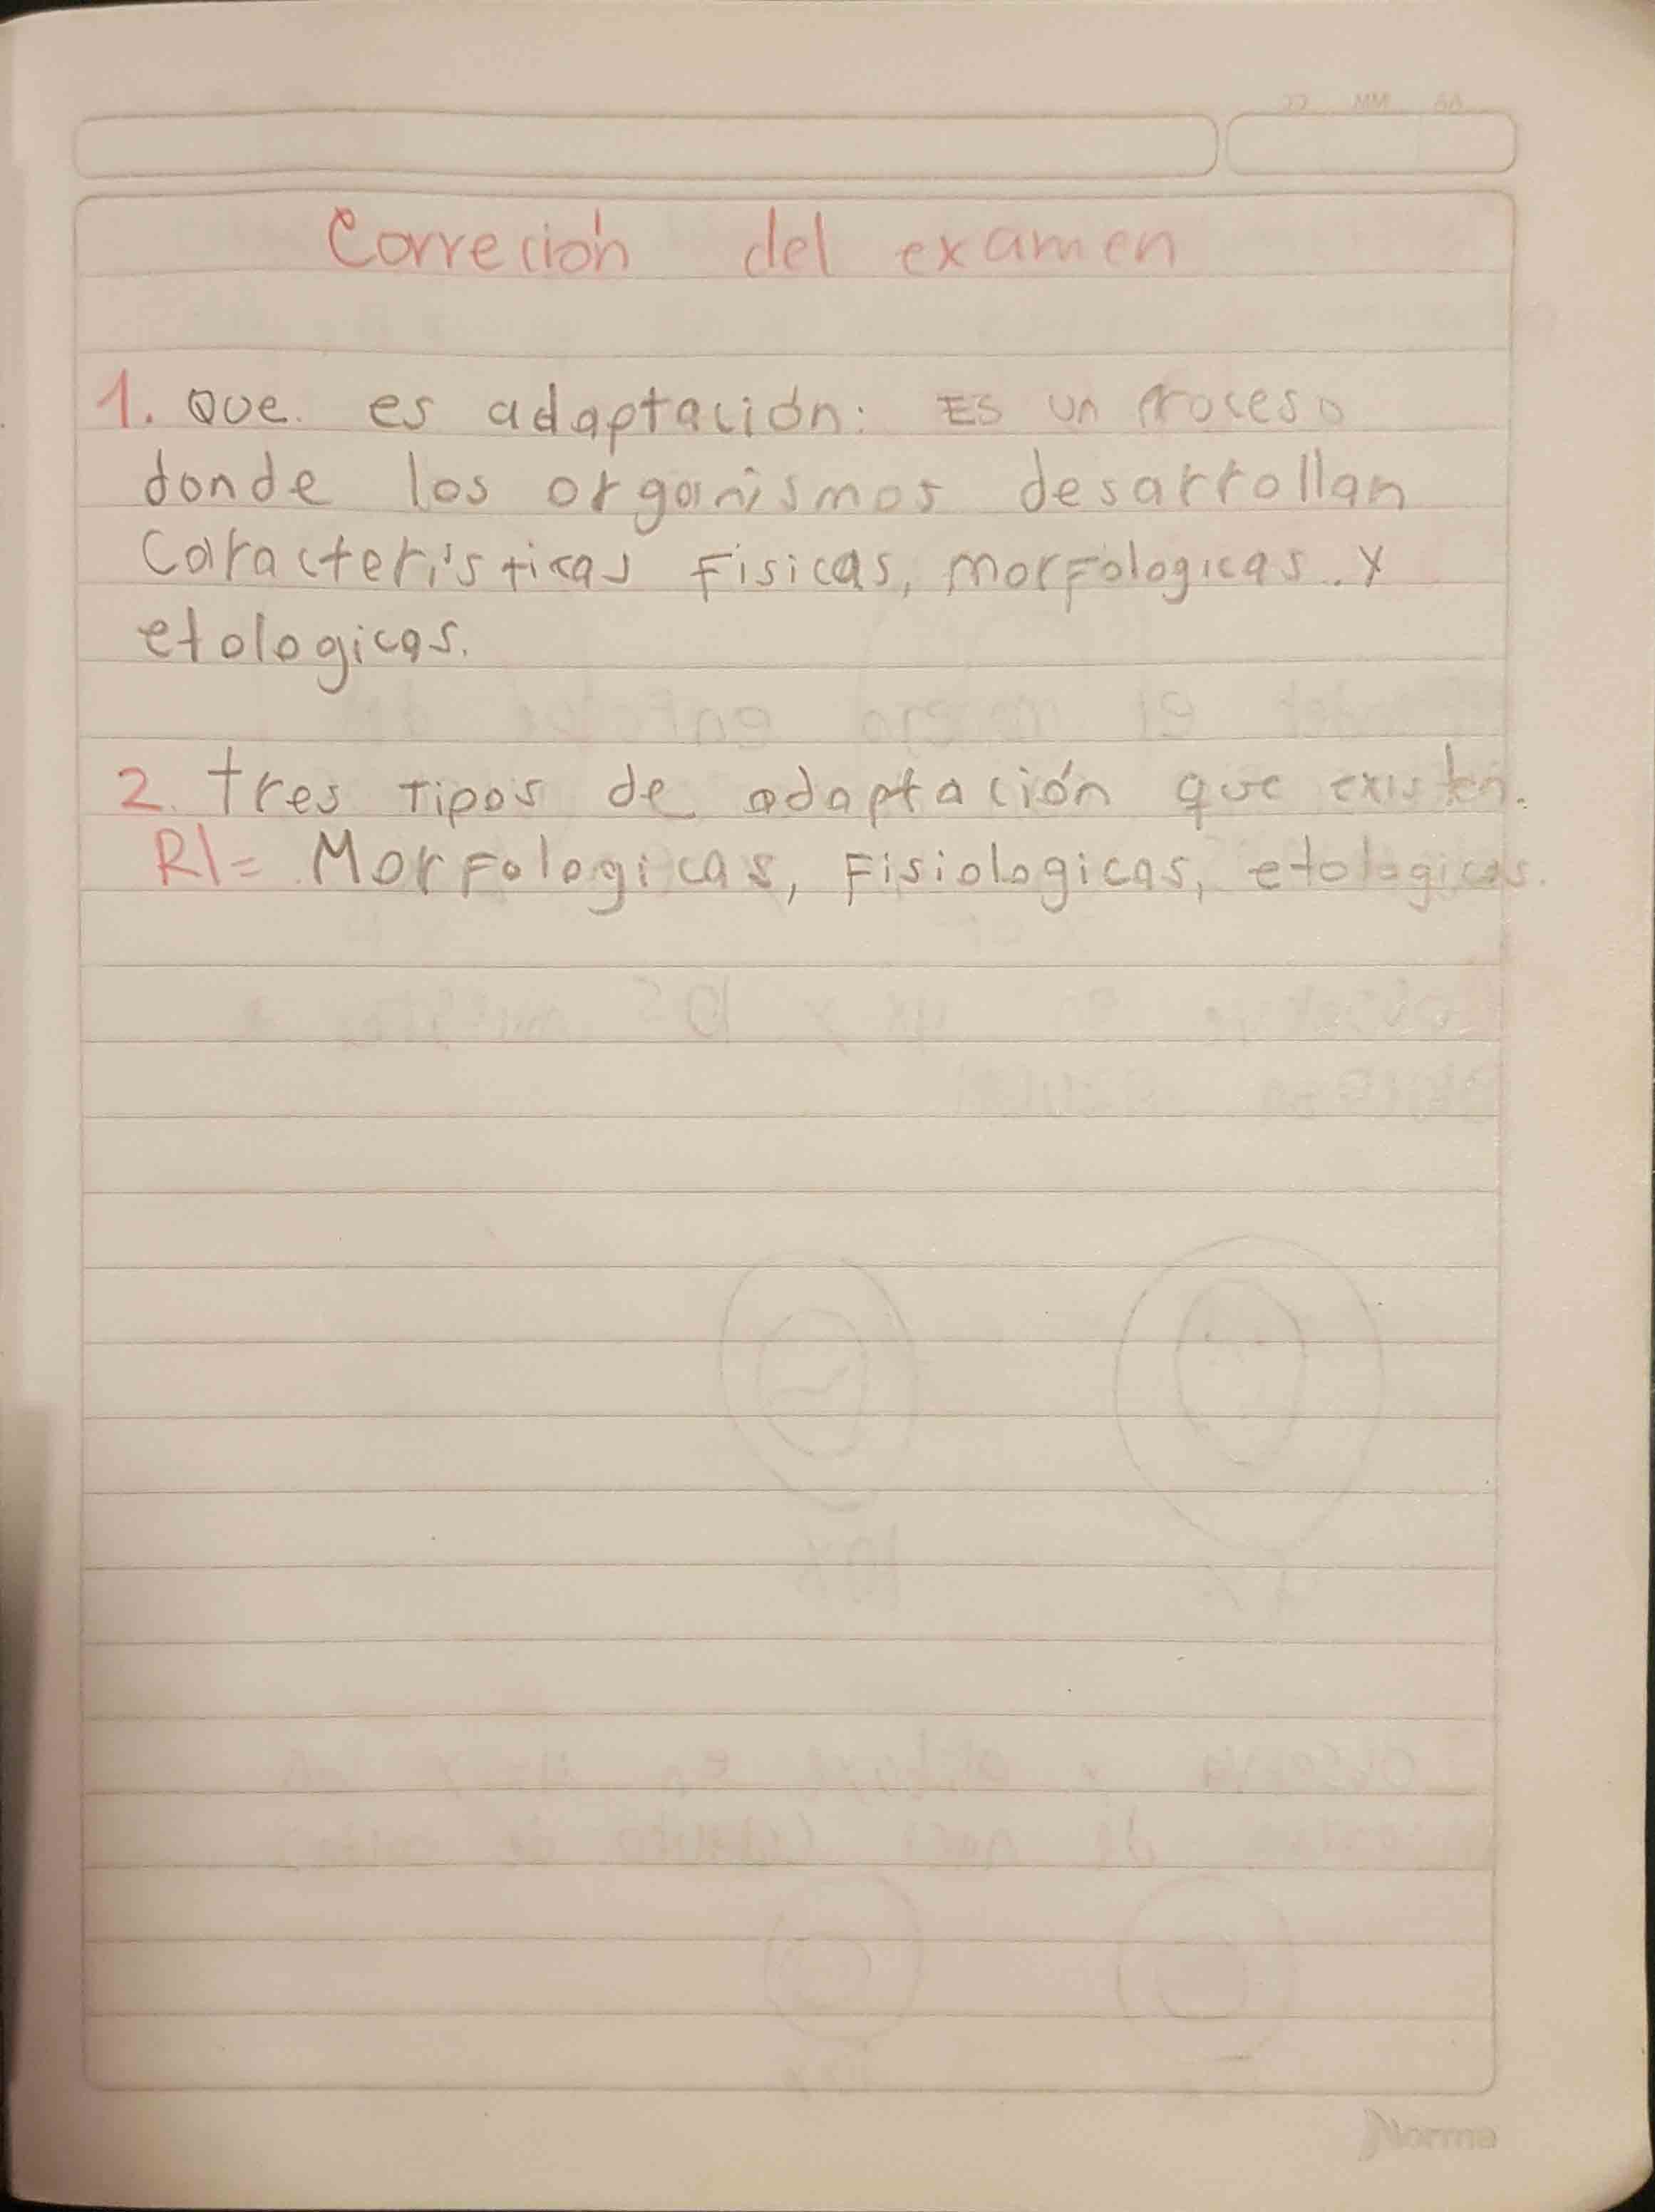 DD MM AA
Correcion del examen
1. Que es adaptación: Es un Proceso
donde los organismos desarrollan
Características Fisicas, morfologicas y
etologicas.
2. tres tipos de adaptación que existen.
R/= Morfologicas, Fisiologicas, etologicas.
Norma